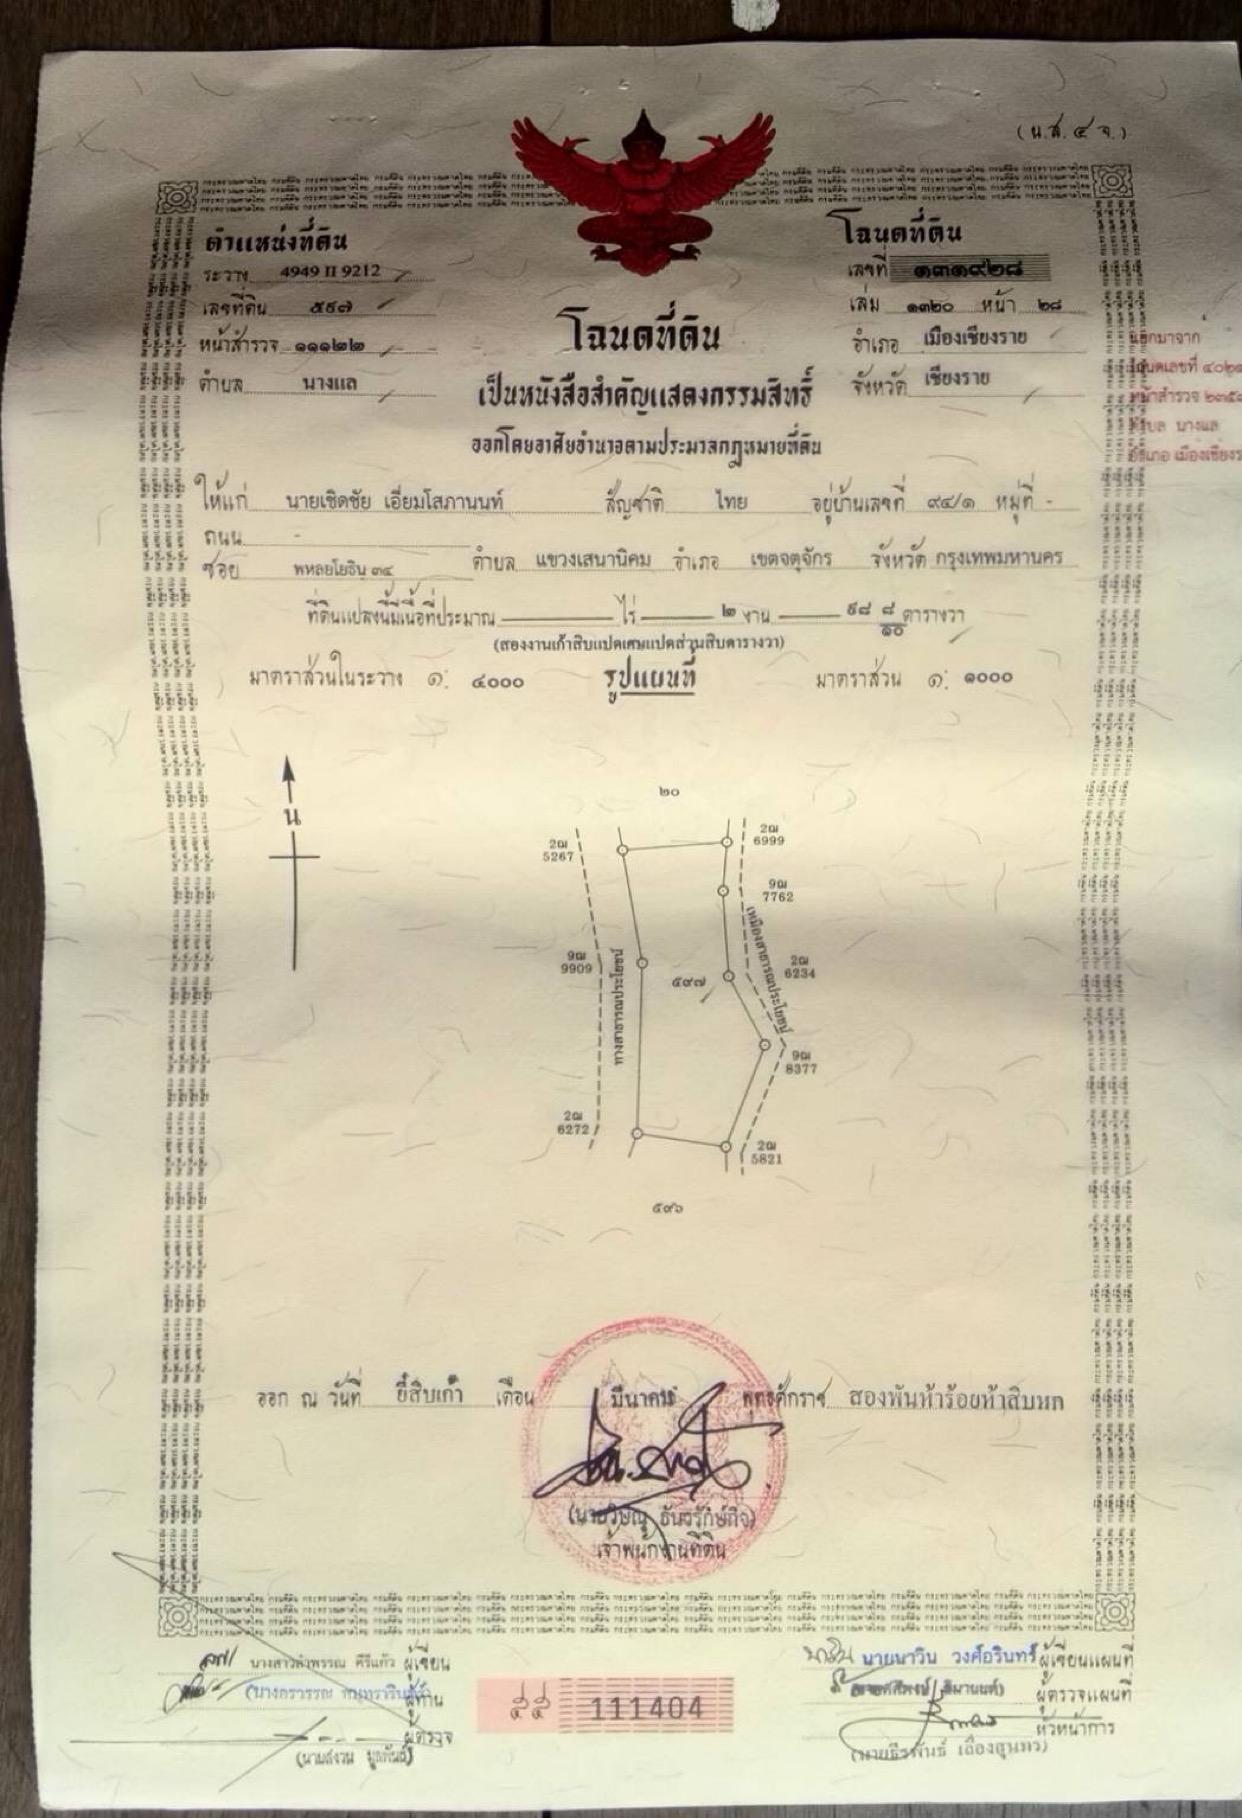 (น.ส.๔ จ.)
ตำแหน่งที่ดิน
ระวาง 4949 II 9212
เลขที่ดิน ๕๙๗
หน้าสำรวจ ๑๑๑๒๒
ตำบล นางแล
โฉนดที่ดิน
เลขที่ ๑๓๑๙๒๘
เล่ม ๑๓๒๐ หน้า ๒๘
อำเภอ เมืองเชียงราย
จังหวัด เชียงราย
โฉนดที่ดิน
เป็นหนังสือสำคัญแสดงกรรมสิทธิ์
ออกโดยอาศัยอำนาจตามประมวลกฎหมายที่ดิน
ตำบล นางแล
อำเภอ
ให้แก่ นายเชิดชัย เอี่ยมโสภานนท์ สัญชาติ ไทย อยู่บ้านเลขที่ ๙๔/๑ หมู่ที่ -
ถนน -
ซอย พหลโยธิน ๓๔ ตำบล แขวงเสนานิคม อำเภอ เขตจตุจักร จังหวัด กรุงเทพมหานคร
ที่ดินแปลงนี้มีเนื้อที่ประมาณ ไร่ ๒ งาน ๙๘ ๘/๑๐ ตารางวา
(สองงานเก้าสิบแปดเศษแปดส่วนสิบตารางวา)
มาตราส่วนในระวาง ๑: ๔๐๐๐ รูปแผนที่ มาตราส่วน ๑: ๑๐๐๐
น
๒๐
2ฌ
5267
2ฌ
6999
9ฌ
7762
เหมืองสาธารณประโยชน์
9ฌ
9909
ทางสาธารณประโยชน์
๕๙๗
2ฌ
6234
9ฌ
8377
2ฌ
6272
2ฌ
5821
๕๙๖
ออก ณ วันที่ ยี่สิบเก้า เดือน มีนาคม พุทธศักราช สองพันห้าร้อยห้าสิบหก
(นายวิษณุ ธันวรักษ์กิจ)
เจ้าพนักงานที่ดิน
ผู้เขียน
ผู้ทาน
ผู้ตรวจ
111404
นายนาวิน วงศ์อรินทร์ ผู้เขียนแผนที่
ผู้ตรวจแผนที่
หัวหน้าการ